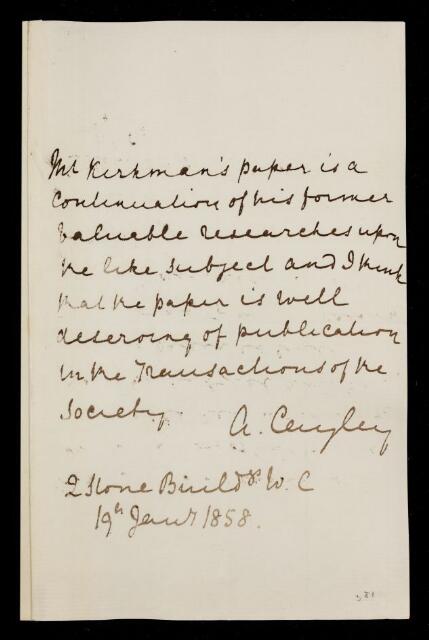 Mr Kirkman's paper is a
continuation of his former
valuable researches upon
the like subject and I think
that the paper is well
deserving of publication
in the Transactions of the
Society.
A. Cayley
2 Stone Buildgs. W. C
19th Jany 1858.